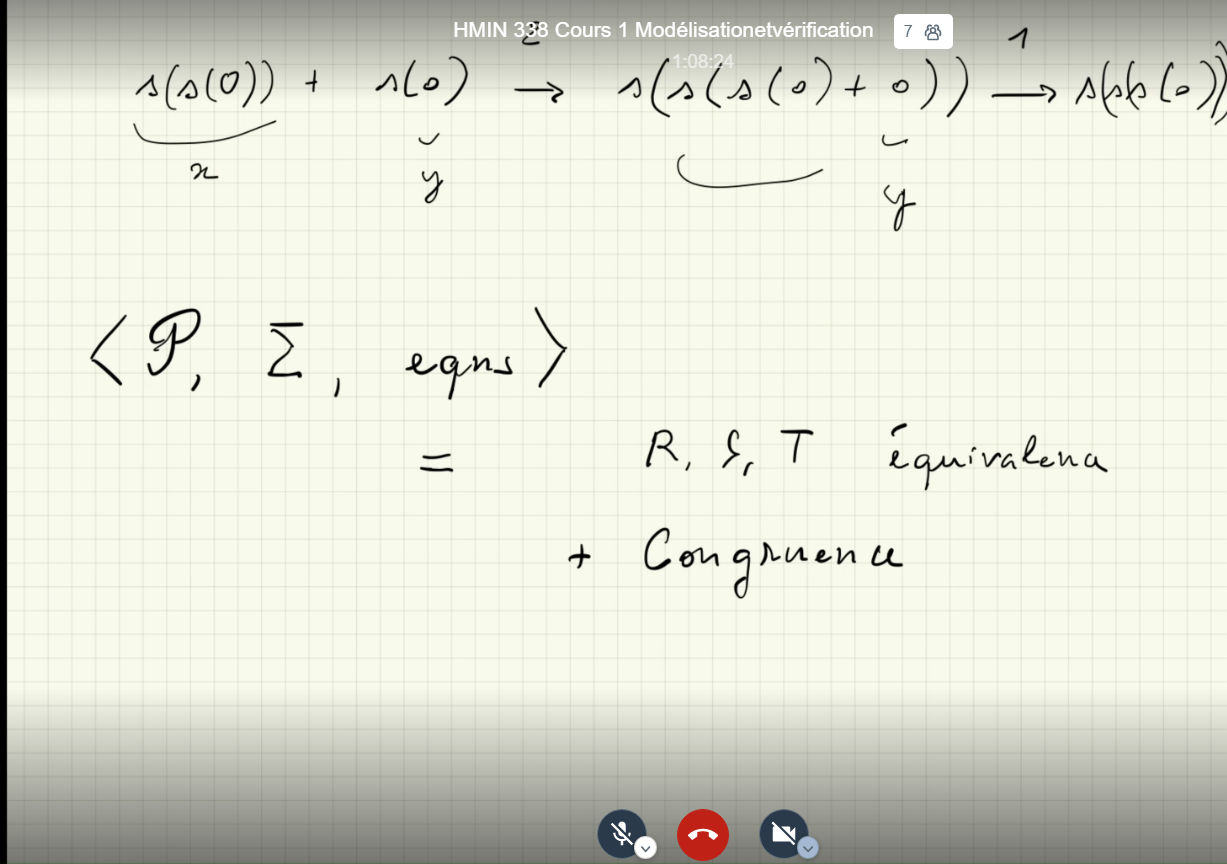 HMIN 338 Cours 1 Modélisationetvérification 7
1:08:24
2 1
s(s(0)) + s(0) → s(s(s(0)+0)) → s(s(s(0))
x y y
⟨P, Σ, eqns⟩
= R, S, T équivalence
+ Congruence